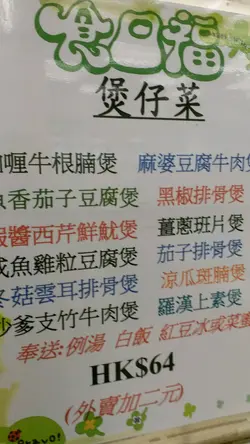 食口福
煲仔菜
咖喱牛根腩煲 麻婆豆腐牛肉煲
魚香茄子豆腐煲 黑椒排骨煲
蝦醬西芹鮮魷煲 薑蔥班片煲
咸魚雞粒豆腐煲 茄子排骨煲
冬菇雲耳排骨煲 涼瓜斑腩煲
沙爹支竹牛肉煲 羅漢上素煲
奉送:例湯 白飯 紅豆冰或菜蜜
HK$64
(外賣加二元)
Bravo!